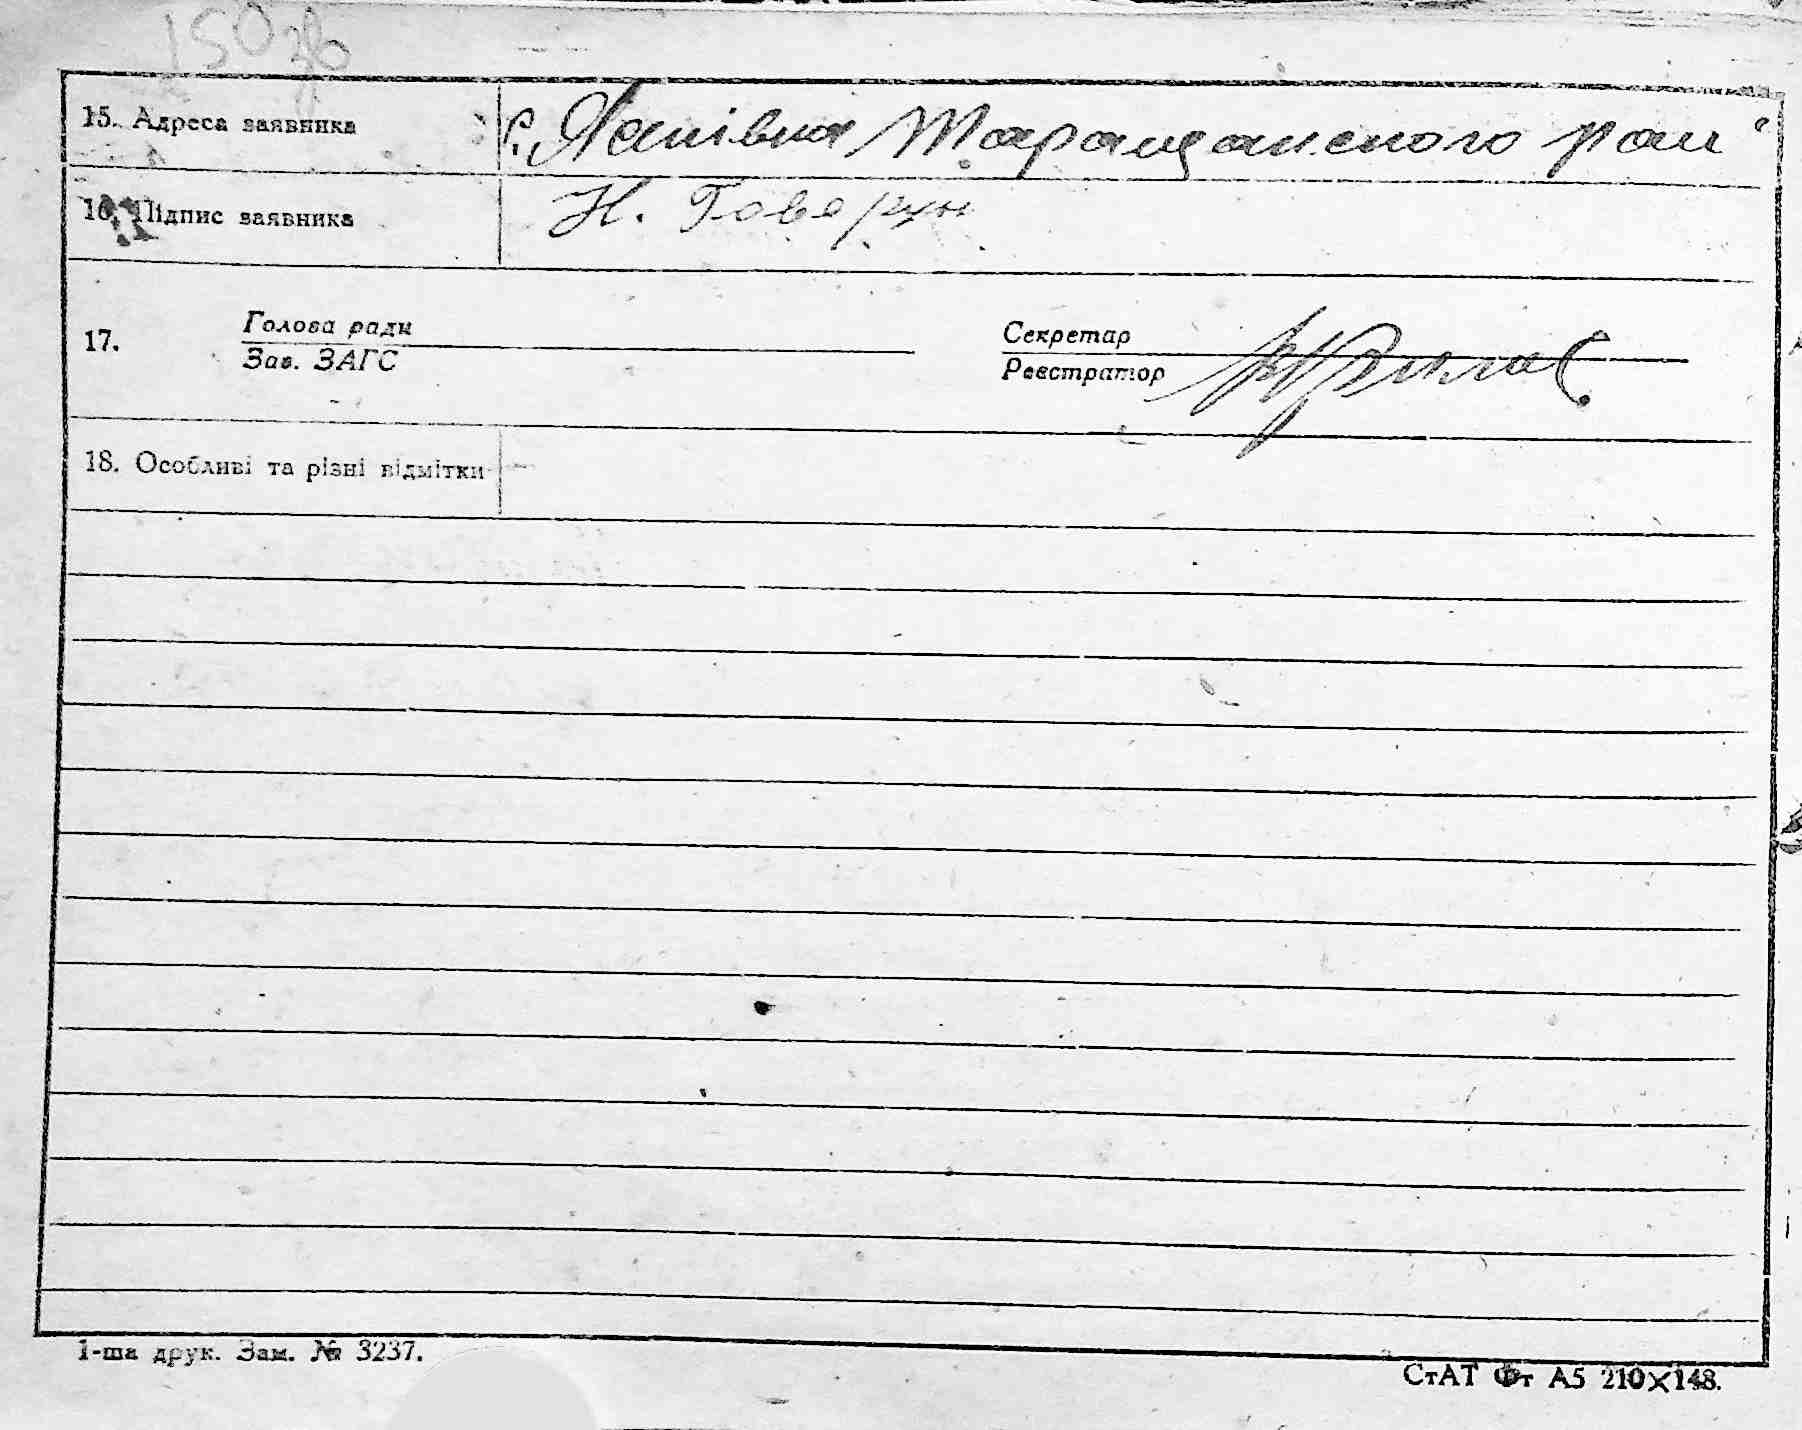 150зв
15. Адреса заявника с. Лапівка Таращанского рай
16. Підпис заявника Н. Говорун
17. Голова ради Секретар
Зав. ЗАГС Реєстратор
18. Особливі та різні відмітки
1-ша друк. Зам. № 3237.
СтАТ Фт А5 210×148.